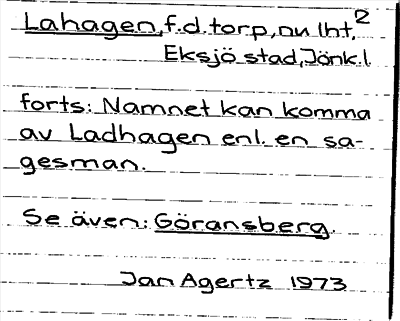 Lahagen, f.d. torp, nu lht, 2
Eksjö stad, Jönk.l.
forts: Namnet kan komma
av Ladhagen enl. en sa-
gesman.
Se även: Göransberg.
Jan Agertz 1973